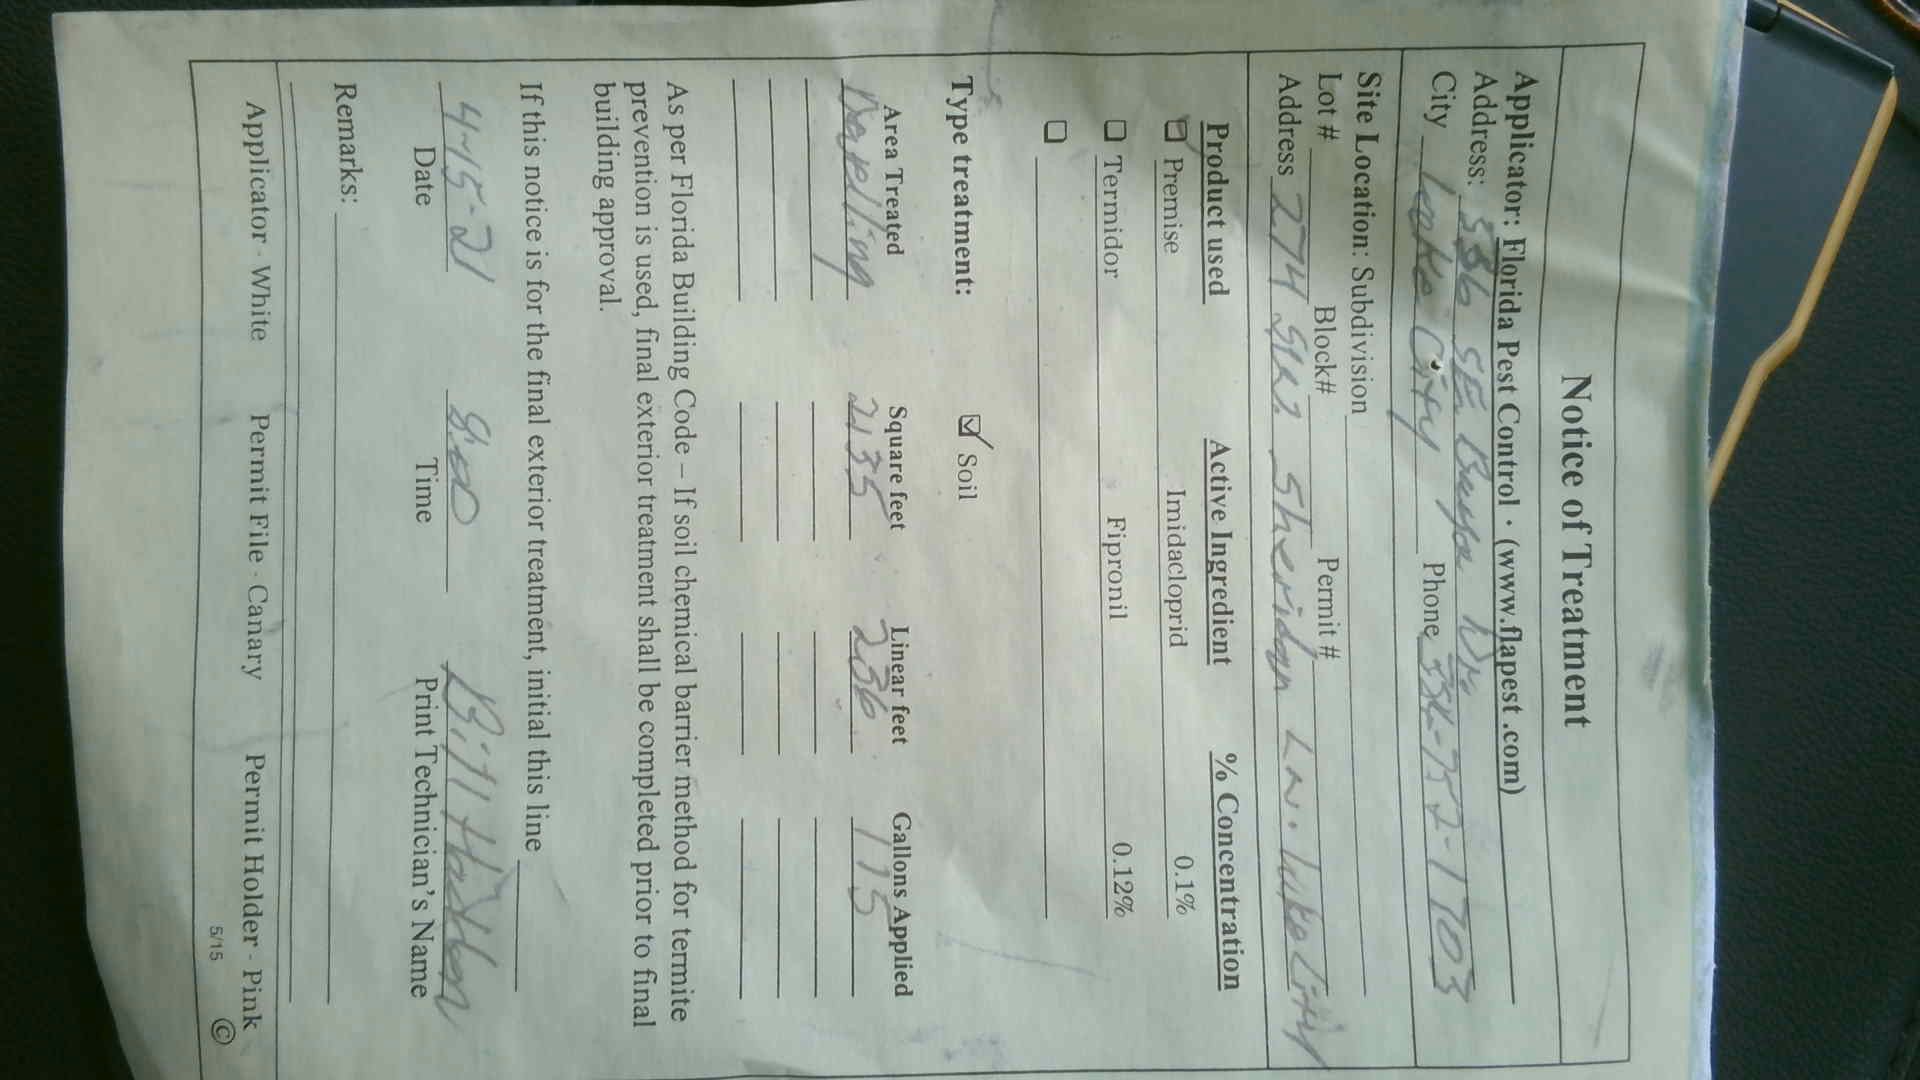 Notice of Treatment
Applicator: Florida Pest Control · (www.flapest.com)
Address: 536 SE Baya Dr.
City Lake City Phone 386-752-1703
Site Location: Subdivision
Lot # Block# Permit #
Address 274 Sheridan Ln. Lake City
Product used Active Ingredient % Concentration
Premise Imidacloprid 0.1%
Termidor Fipronil 0.12%
Type treatment: Soil
Area Treated Square feet Linear feet Gallons Applied
Dwelling 2135 236 175
As per Florida Building Code – If soil chemical barrier method for termite
prevention is used, final exterior treatment shall be completed prior to final
building approval.
If this notice is for the final exterior treatment, initial this line
4-15-21 8:00 Bill
Date Time Print Technician's Name
Remarks:
Applicator - White Permit File - Canary Permit Holder - Pink
5/15 ©